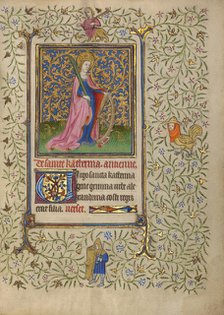 De sainte katherine. antienne
Virgo sancta katherina
grecie gemma urbe ale
xandrina costi regis
erat filia. verset